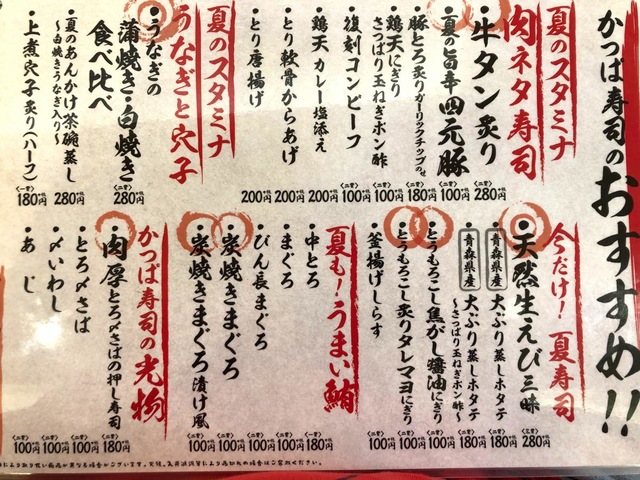 かっぱ寿司のおすすめ!!
夏のスタミナ
肉ネタ寿司
・牛タン炙り 〈二貫〉280円
・夏の旨辛四元豚 〈二貫〉100円
・豚とろ炙りガーリックチップのせ 〈二貫〉180円
・鶏天にぎり
さっぱり玉ねぎポン酢 〈二貫〉100円
・復刻コンビーフ 〈二貫〉100円
・鶏天 カレー塩添え 200円
・とり軟骨からあげ 200円
・とり唐揚げ 200円
夏のスタミナ
うなぎと穴子
・うなぎの
蒲焼き・白焼き
食べ比べ 〈二貫〉280円
・夏のあんかけ茶碗蒸し
～白焼きうなぎ入り～ 280円
・上煮穴子炙り(ハーフ) 〈一貫〉180円
今だけ!夏寿司
・天然生えび三昧 〈三貫〉280円
・青森県産 大ぶり蒸しホタテ 〈二貫〉180円
・青森県産 大ぶり蒸しホタテ
～さっぱり玉ねぎポン酢～ 〈二貫〉180円
・とうもろこし焦がし醤油にぎり 〈二貫〉100円
・とうもろこし炙りタレマヨにぎり 〈二貫〉100円
・釜揚げしらす 〈二貫〉100円
夏も!うまい鮪
・中とろ 〈一貫〉180円
・まぐろ 〈二貫〉100円
・びん長まぐろ 〈二貫〉100円
・炭焼きまぐろ 〈二貫〉100円
・炭焼きまぐろ漬け風 〈二貫〉100円
かっぱ寿司の光物
・肉厚とろ〆さばの押し寿司 〈二貫〉180円
・とろ〆さば 〈二貫〉100円
・〆いわし 〈二貫〉100円
・あじ 〈二貫〉100円